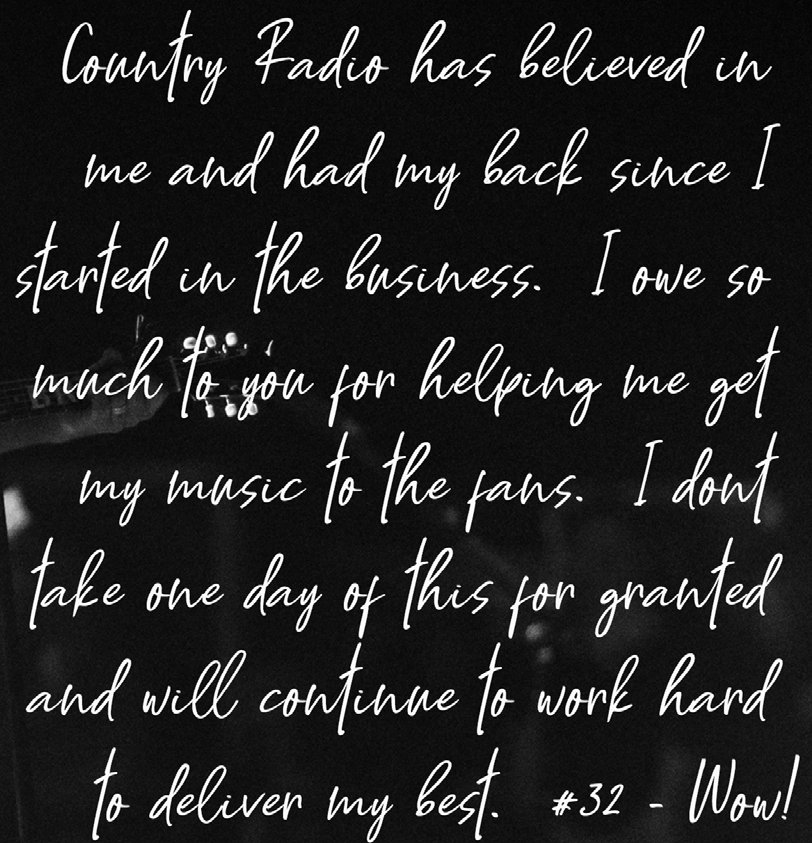 Country Radio has believed in
me and had my back since I
started in the business. I owe so
much to you for helping me get
my music to the fans. I dont
take one day of this for granted
and will continue to work hard
to deliver my best. #32 - Wow!